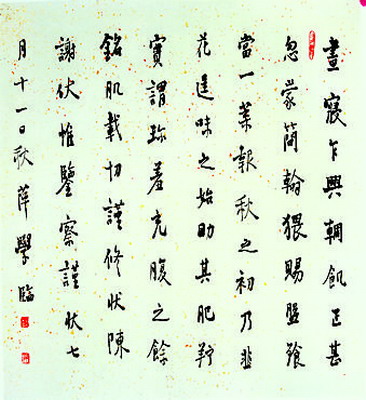 晝寢乍興輖飢正甚
忽蒙簡翰猥賜盤飧
當一葉報秋之初乃韭
花逞味之始助其肥羜
實謂珍羞充腹之餘
銘肌載切謹修狀陳
謝伏惟鑒察謹狀七
月十一日秋萍學臨